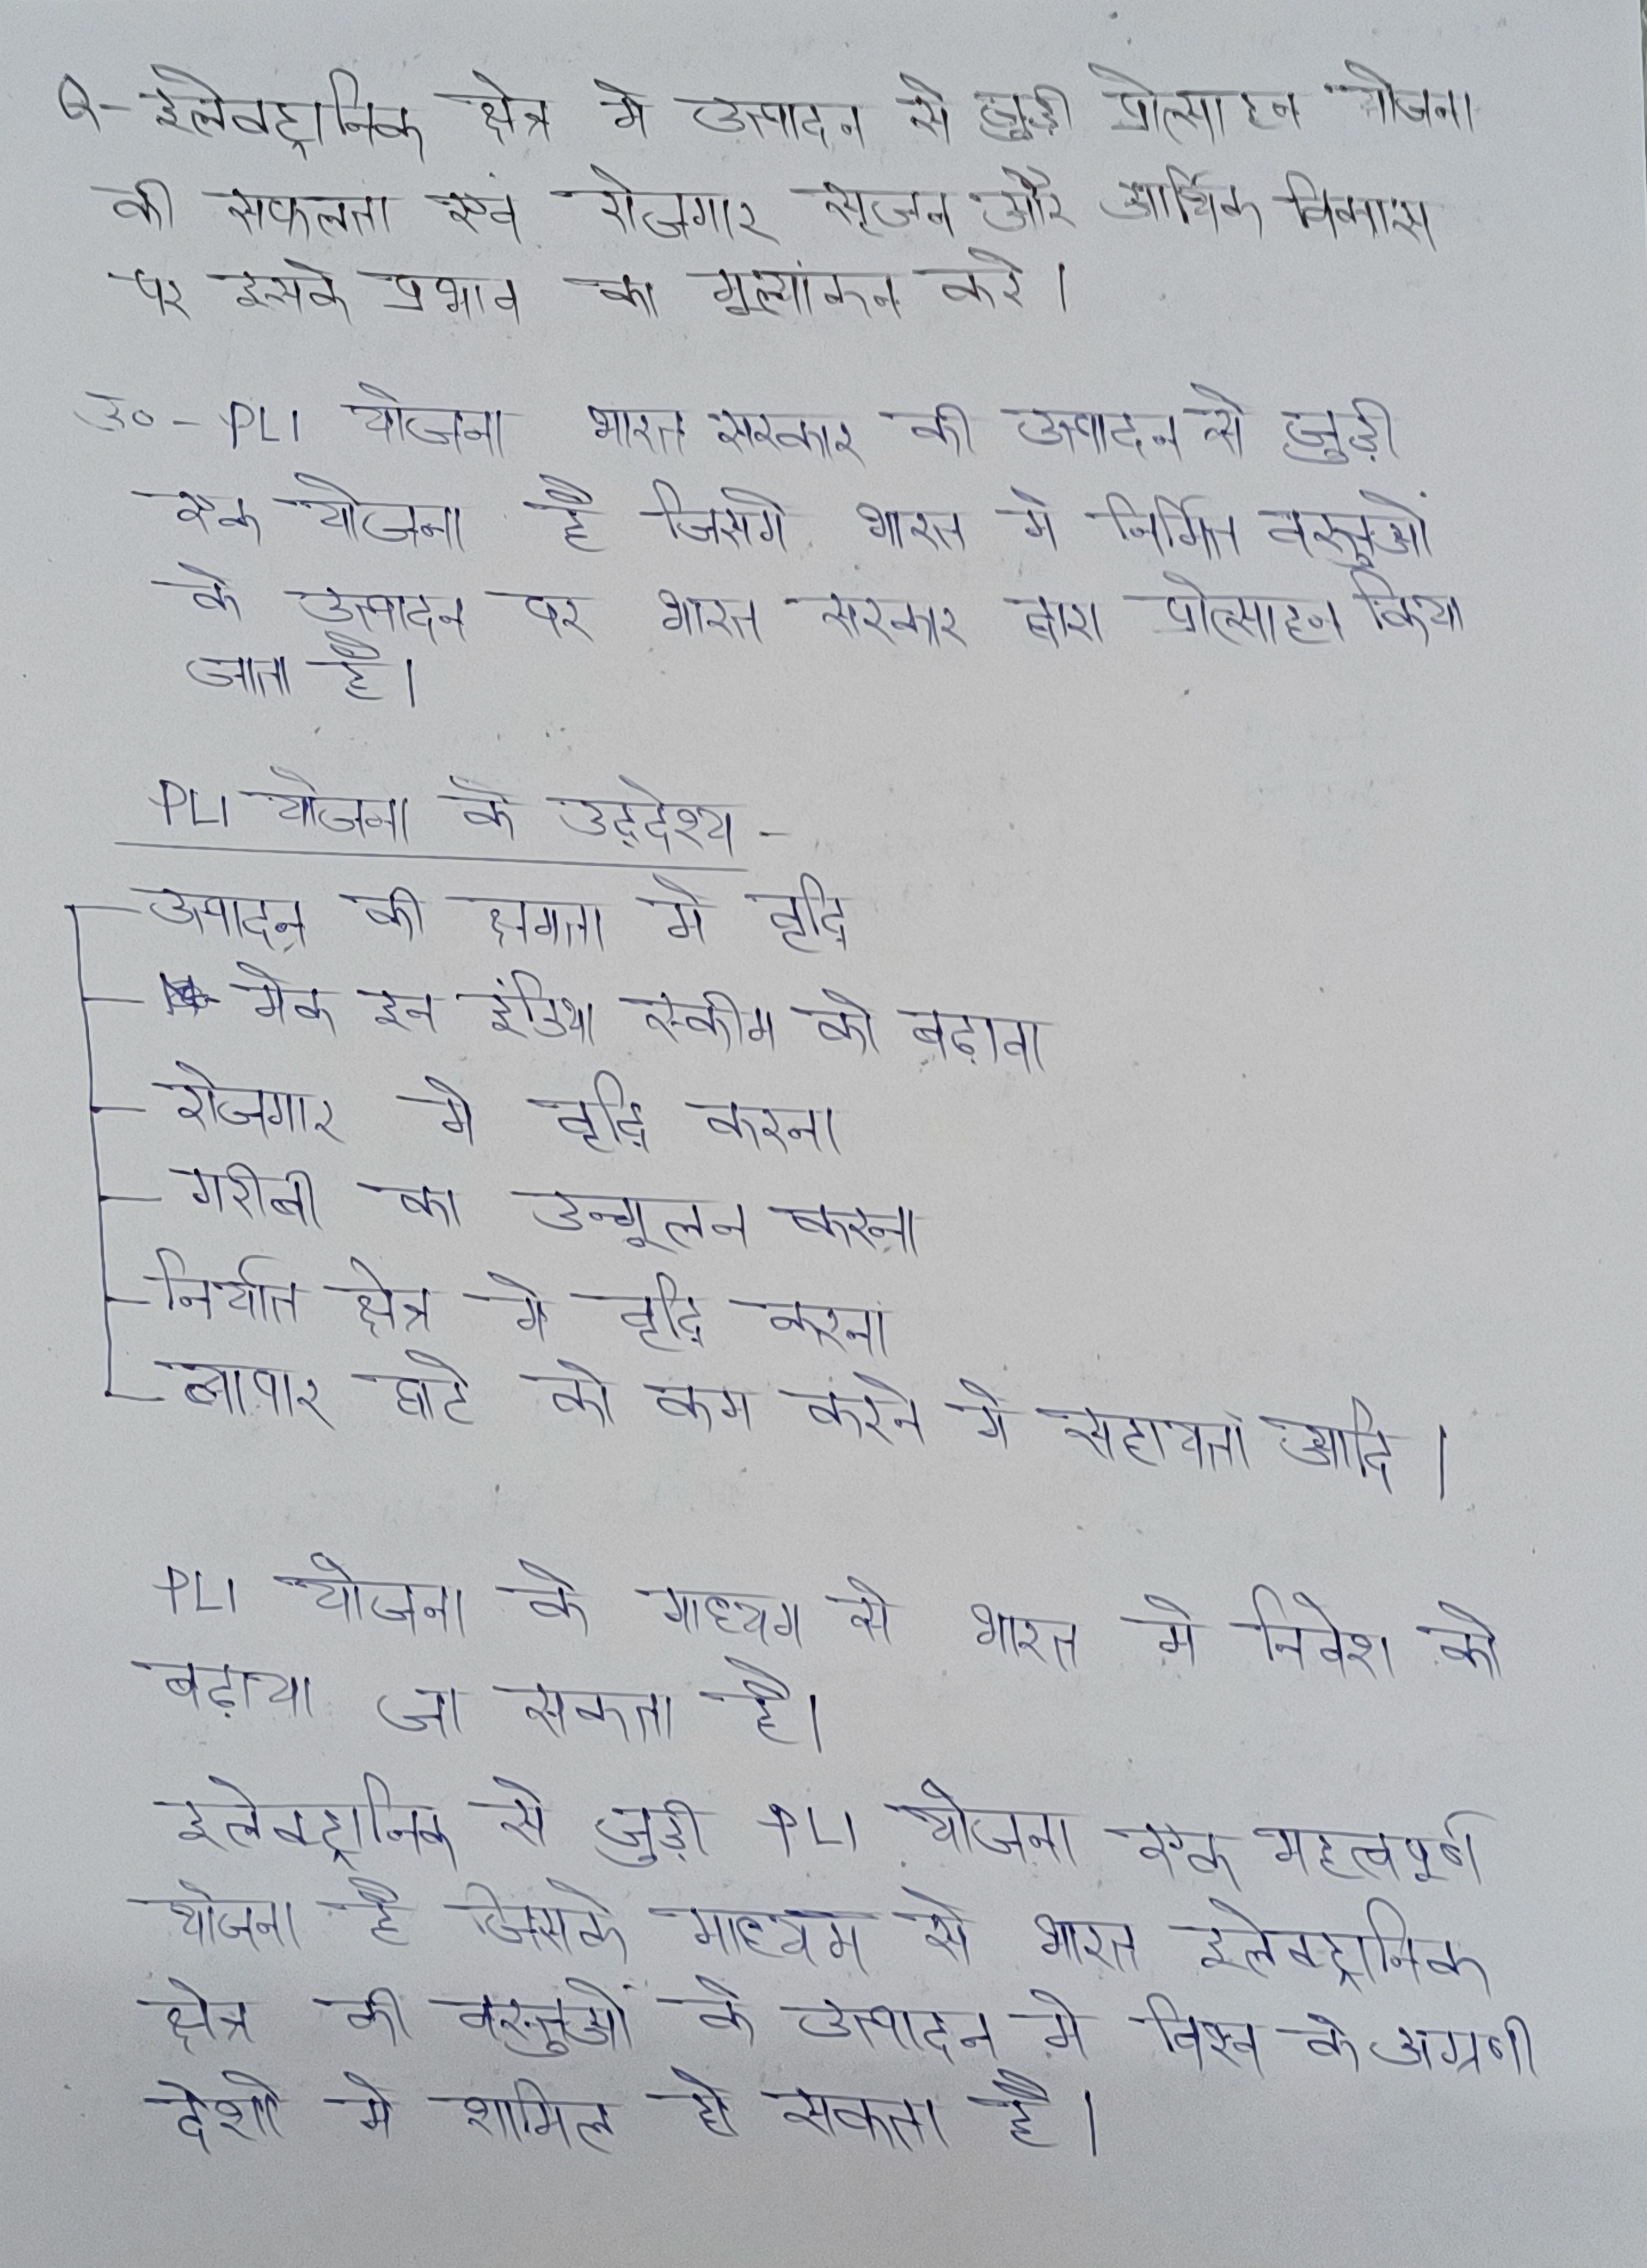 Q- इलेक्ट्रानिक क्षेत्र मे उत्पादन से जुड़ी प्रोत्साहन योजना
की सफलता एवं रोजगार सृजन और आर्थिक विकास
पर इसके प्रभाव का मूल्यांकन करे।
उ०- PLI योजना भारत सरकार की उत्पादन से जुड़ी
एक योजना है जिसमे भारत मे निर्मित वस्तुओं
के उत्पादन पर भारत सरकार द्वारा प्रोत्साहन किया
जाता है।
PLI योजना के उद्देश्य -
उत्पादन की क्षमता मे वृद्धि
मेक इन इंडिया स्कीम को बढ़ावा
रोजगार मे वृद्धि करना
गरीबी का उन्मूलन करना
निर्यात क्षेत्र मे वृद्धि करना
व्यापार घाटे को कम करने मे सहायता आदि।
PLI योजना के माध्यम से भारत मे निवेश को
बढ़ाया जा सकता है।
इलेक्ट्रानिक से जुड़ी PLI योजना एक महत्वपूर्ण
योजना है जिसके माध्यम से भारत इलेक्ट्रानिक
क्षेत्र की वस्तुओं के उत्पादन मे विश्व के अग्रणी
देशो मे शामिल हो सकता है।